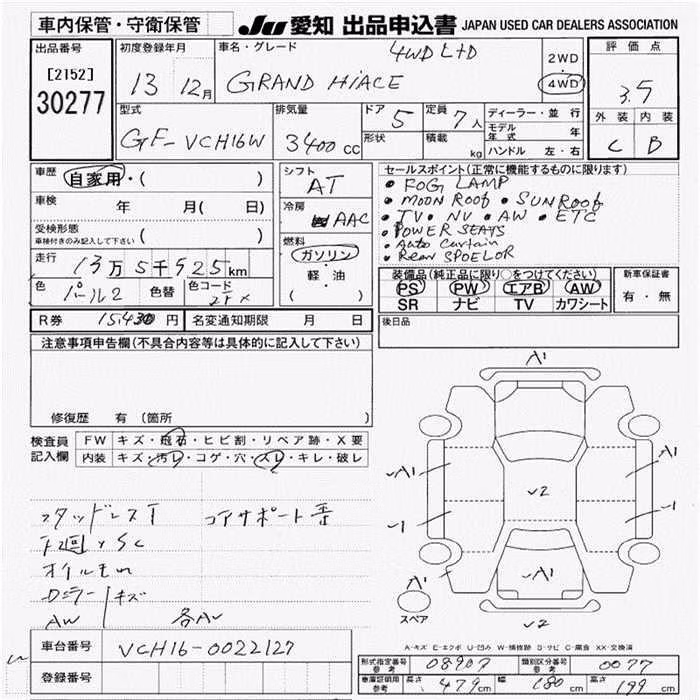 車内保管・守衛保管
JU 愛知 出品申込書 JAPAN USED CAR DEALERS ASSOCIATION
出品番号 初度登録年月 車名・グレード 4WD LTD 2WD 評価点
[2152] 13 12月 GRAND HiACE 4WD 3.5
30277
型式 排気量 ドア 5 定員 7人 ディーラー・並行 外装 内装
GF-VCH16W 3400cc 形状 積載 kg モデル年式 年 C B
ハンドル 左・右
車歴 自家用・( ) シフト AT セールスポイント(正常に機能するものに限ります)
車検 年 月( 日) 冷房 AAC
• FOG LAMP
• MOON ROOF • SUNROOF
• TV • NV • AW • ETC
• POWER SEATS
• Auto Curtain
• Rear SPOELOR
受検形態 ( )
車検付きのみ記入して下さい
燃料 ガソリン
軽・油
( )
走行 13万5千925km
色 パール2 色替 色コード
装備品(純正品に限り○をつけてください) 新車保証書
PS PW エアB AW 有・無
SR ナビ TV カワシート
R券 15,430円 名変通知期限 月 日 後日品
注意事項申告欄(不具合内容等は具体的に記入して下さい)
修復歴 有(箇所
検査員 FW キズ・飛石・ヒビ割・リペア跡・X要
記入欄 内装 キズ・汚レ・コゲ・穴・スレ・キレ・破レ
スタッドレスT コアサポート
下廻りSC
オイルモレ
キズ
AW 各AV
A1
A1
A1
√2
-1
-1
A1
A1
A1
√2
スペア
A-キズ E-エクボ U-凹み W-補修跡 S-サビ C-腐食 XX-交換済
車台番号 VCH16-0022127
登録番号
形式指定番号 参考 08907 類別区分番号 参考 0077
車庫証明用 参考 長さ 479cm 幅 180cm 高さ 199cm